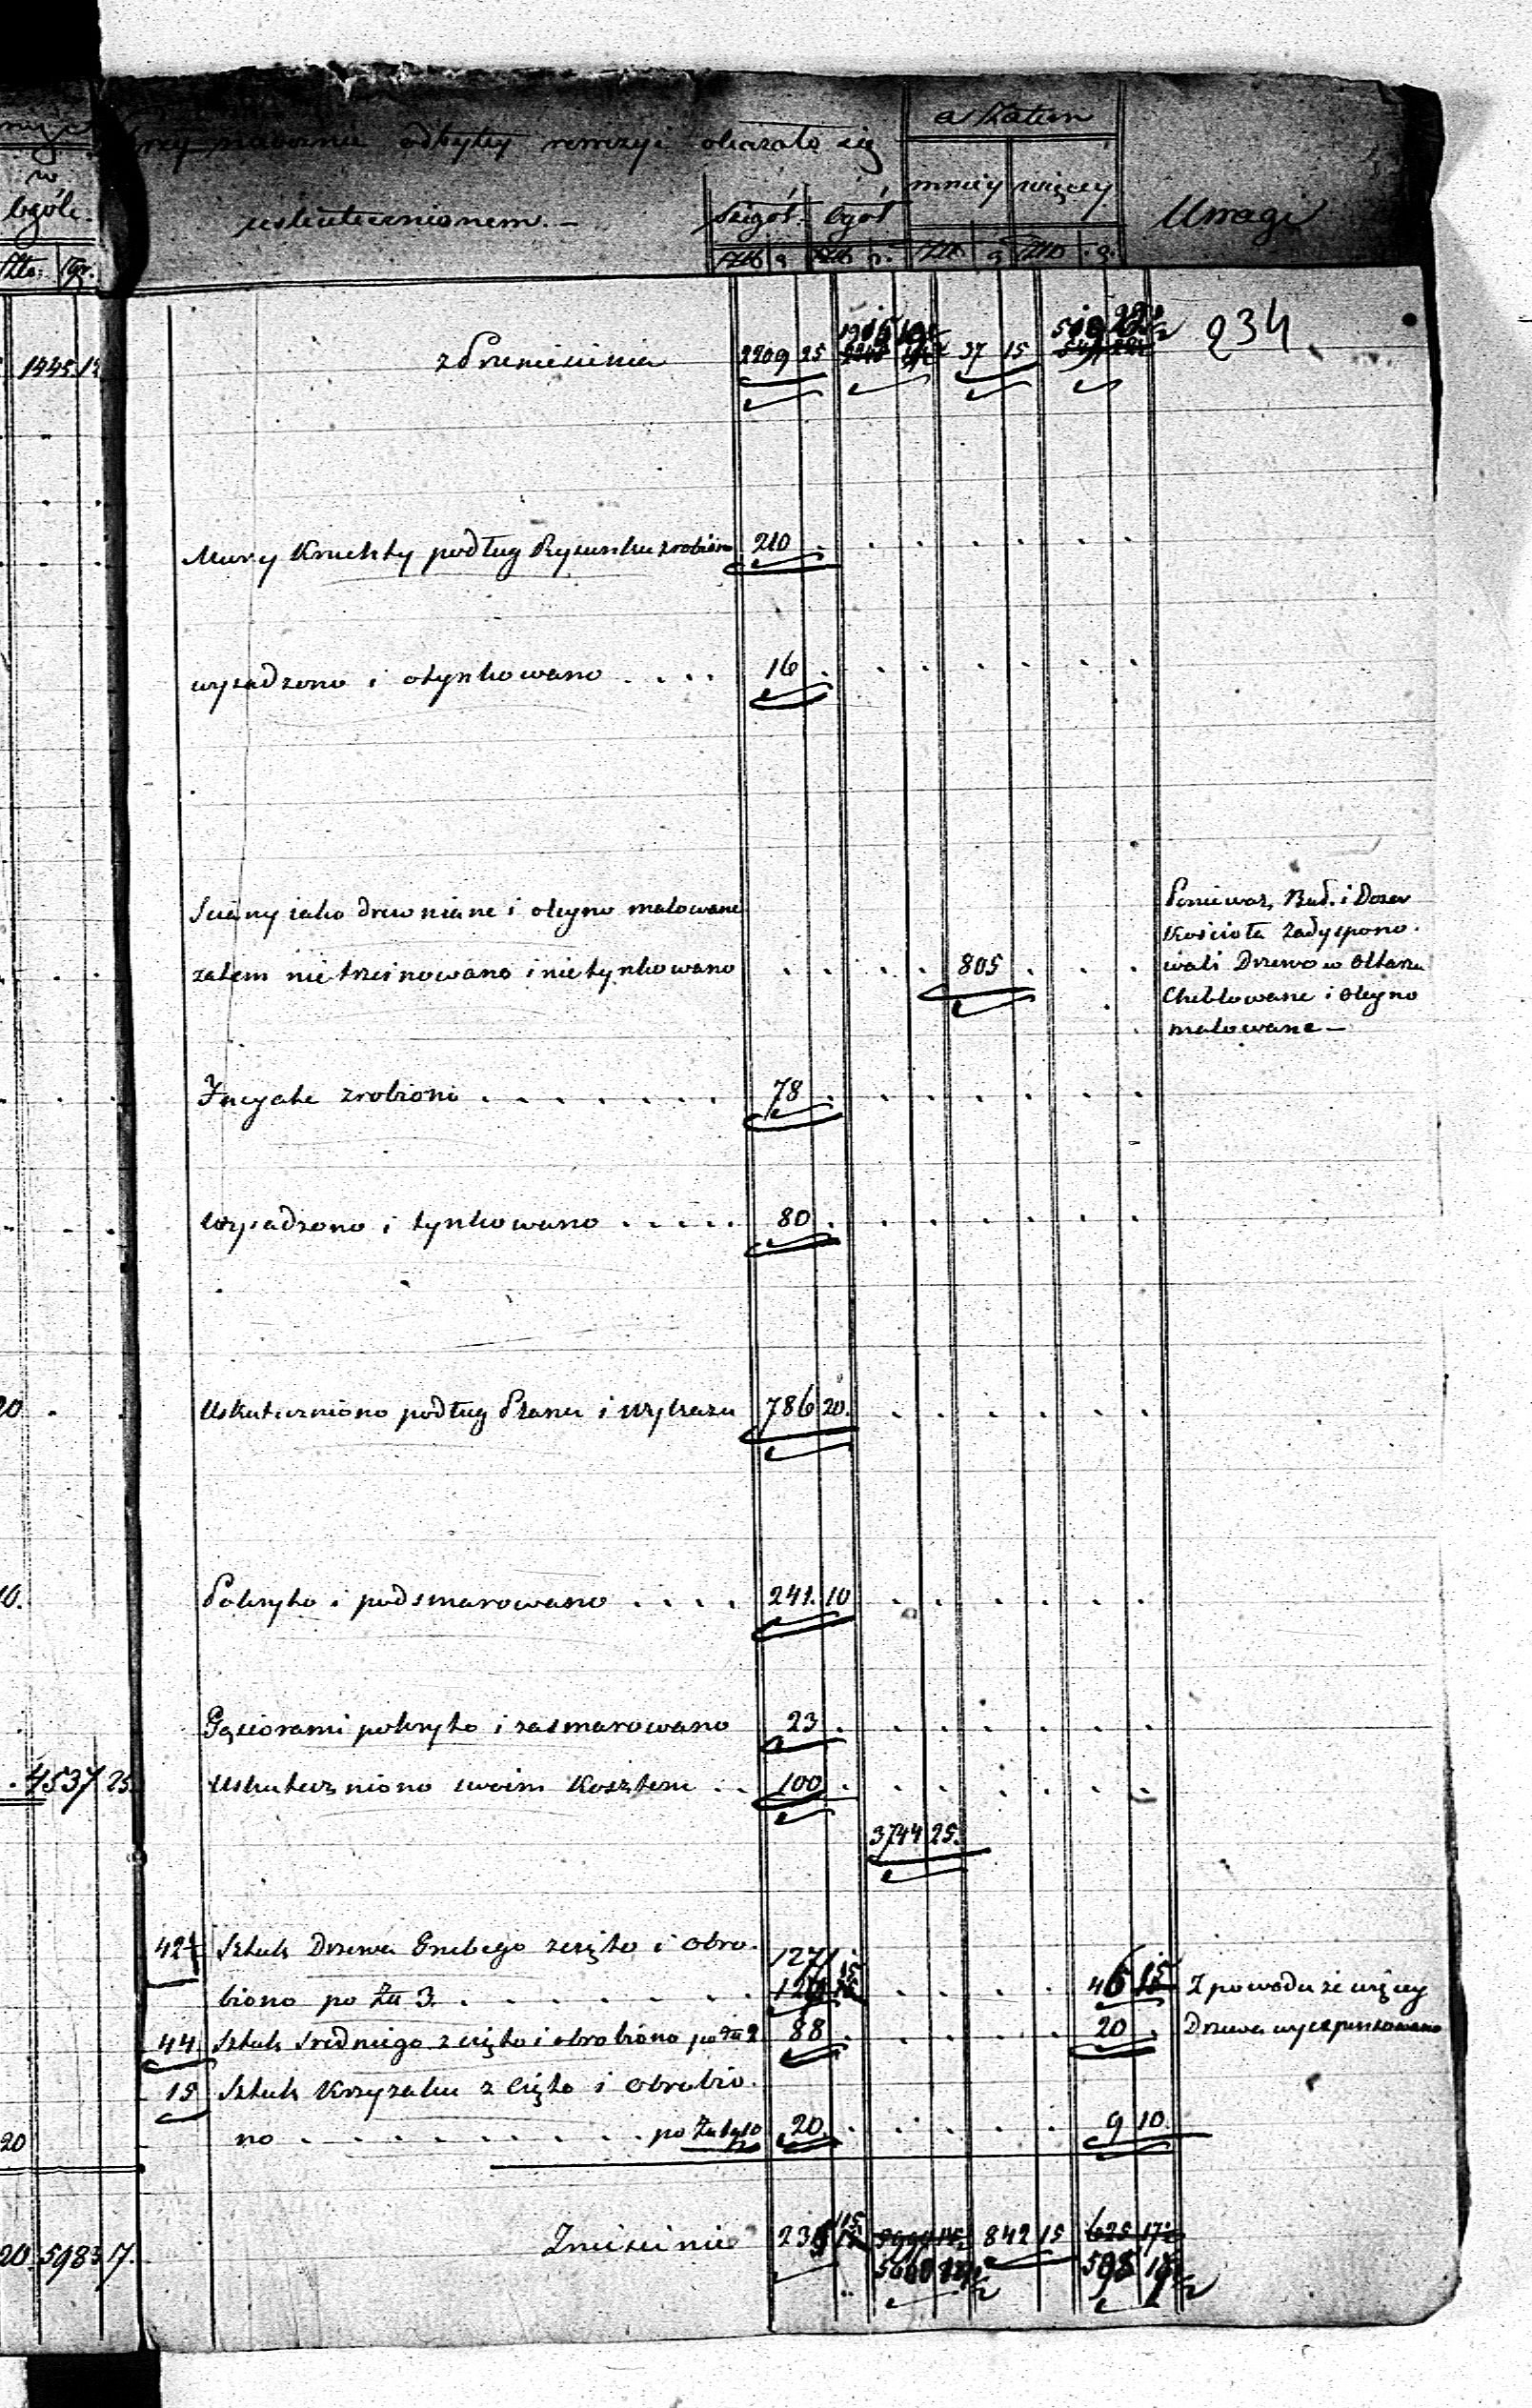 w
Ogóle.
Złt: gr.
przy naocznie odbytey rewizyi okazało się
uskutecznionem. —
Szczegół. Ogół
a Zatem
mniey więcey
Uwagi
1445. 19
z Przeniesienia 2209 25 37 15
234
Mury Kruchty podług Rysunku zrobiono 210 .
wysadzono i otynkowano . . . . 16 .
Sciany iako drewniane i oleyno malowane
zatem nie trzcinowano i nie tynkowano 805 .
Ponieważ Bud. i Dozor
Kościoła zadyspono-
wali Drzewo w Ołtarzu
Cheblowane i oleyno
malowane —
Facyate zrobiono . . . . . . . 78 .
Wysadzono i tynkowano . . . . . 80 .
20 .
Uskuteczniono podług Planu i wykazu 786 20.
10.
Pokryto i podsmarowano . . . . 241. 10
Gąsiorami pokryto i zasmarowano 23 .
. 4537 25.
Uskuteczniono swoim Kosztem . . 100 .
3744 25.
42½ Sztuk Drzewa Grubego ścięto i obro-
biono po Zł 3. . . . . . . . 127 15 46 15 Z powodu że więcey
44 Sztuk Sredniego z cięto i obrobiono po Zł 2 88 . 20 . Drzewa wyexpensowano
15 Sztuk Krzyzaku z cięto i Obrobio-
no . . . . . . . . . po Zł 1 gr 10 20. 9 10.
20
Zniesienie 235 15 842 15 625 17½
20. 5983 17.
598